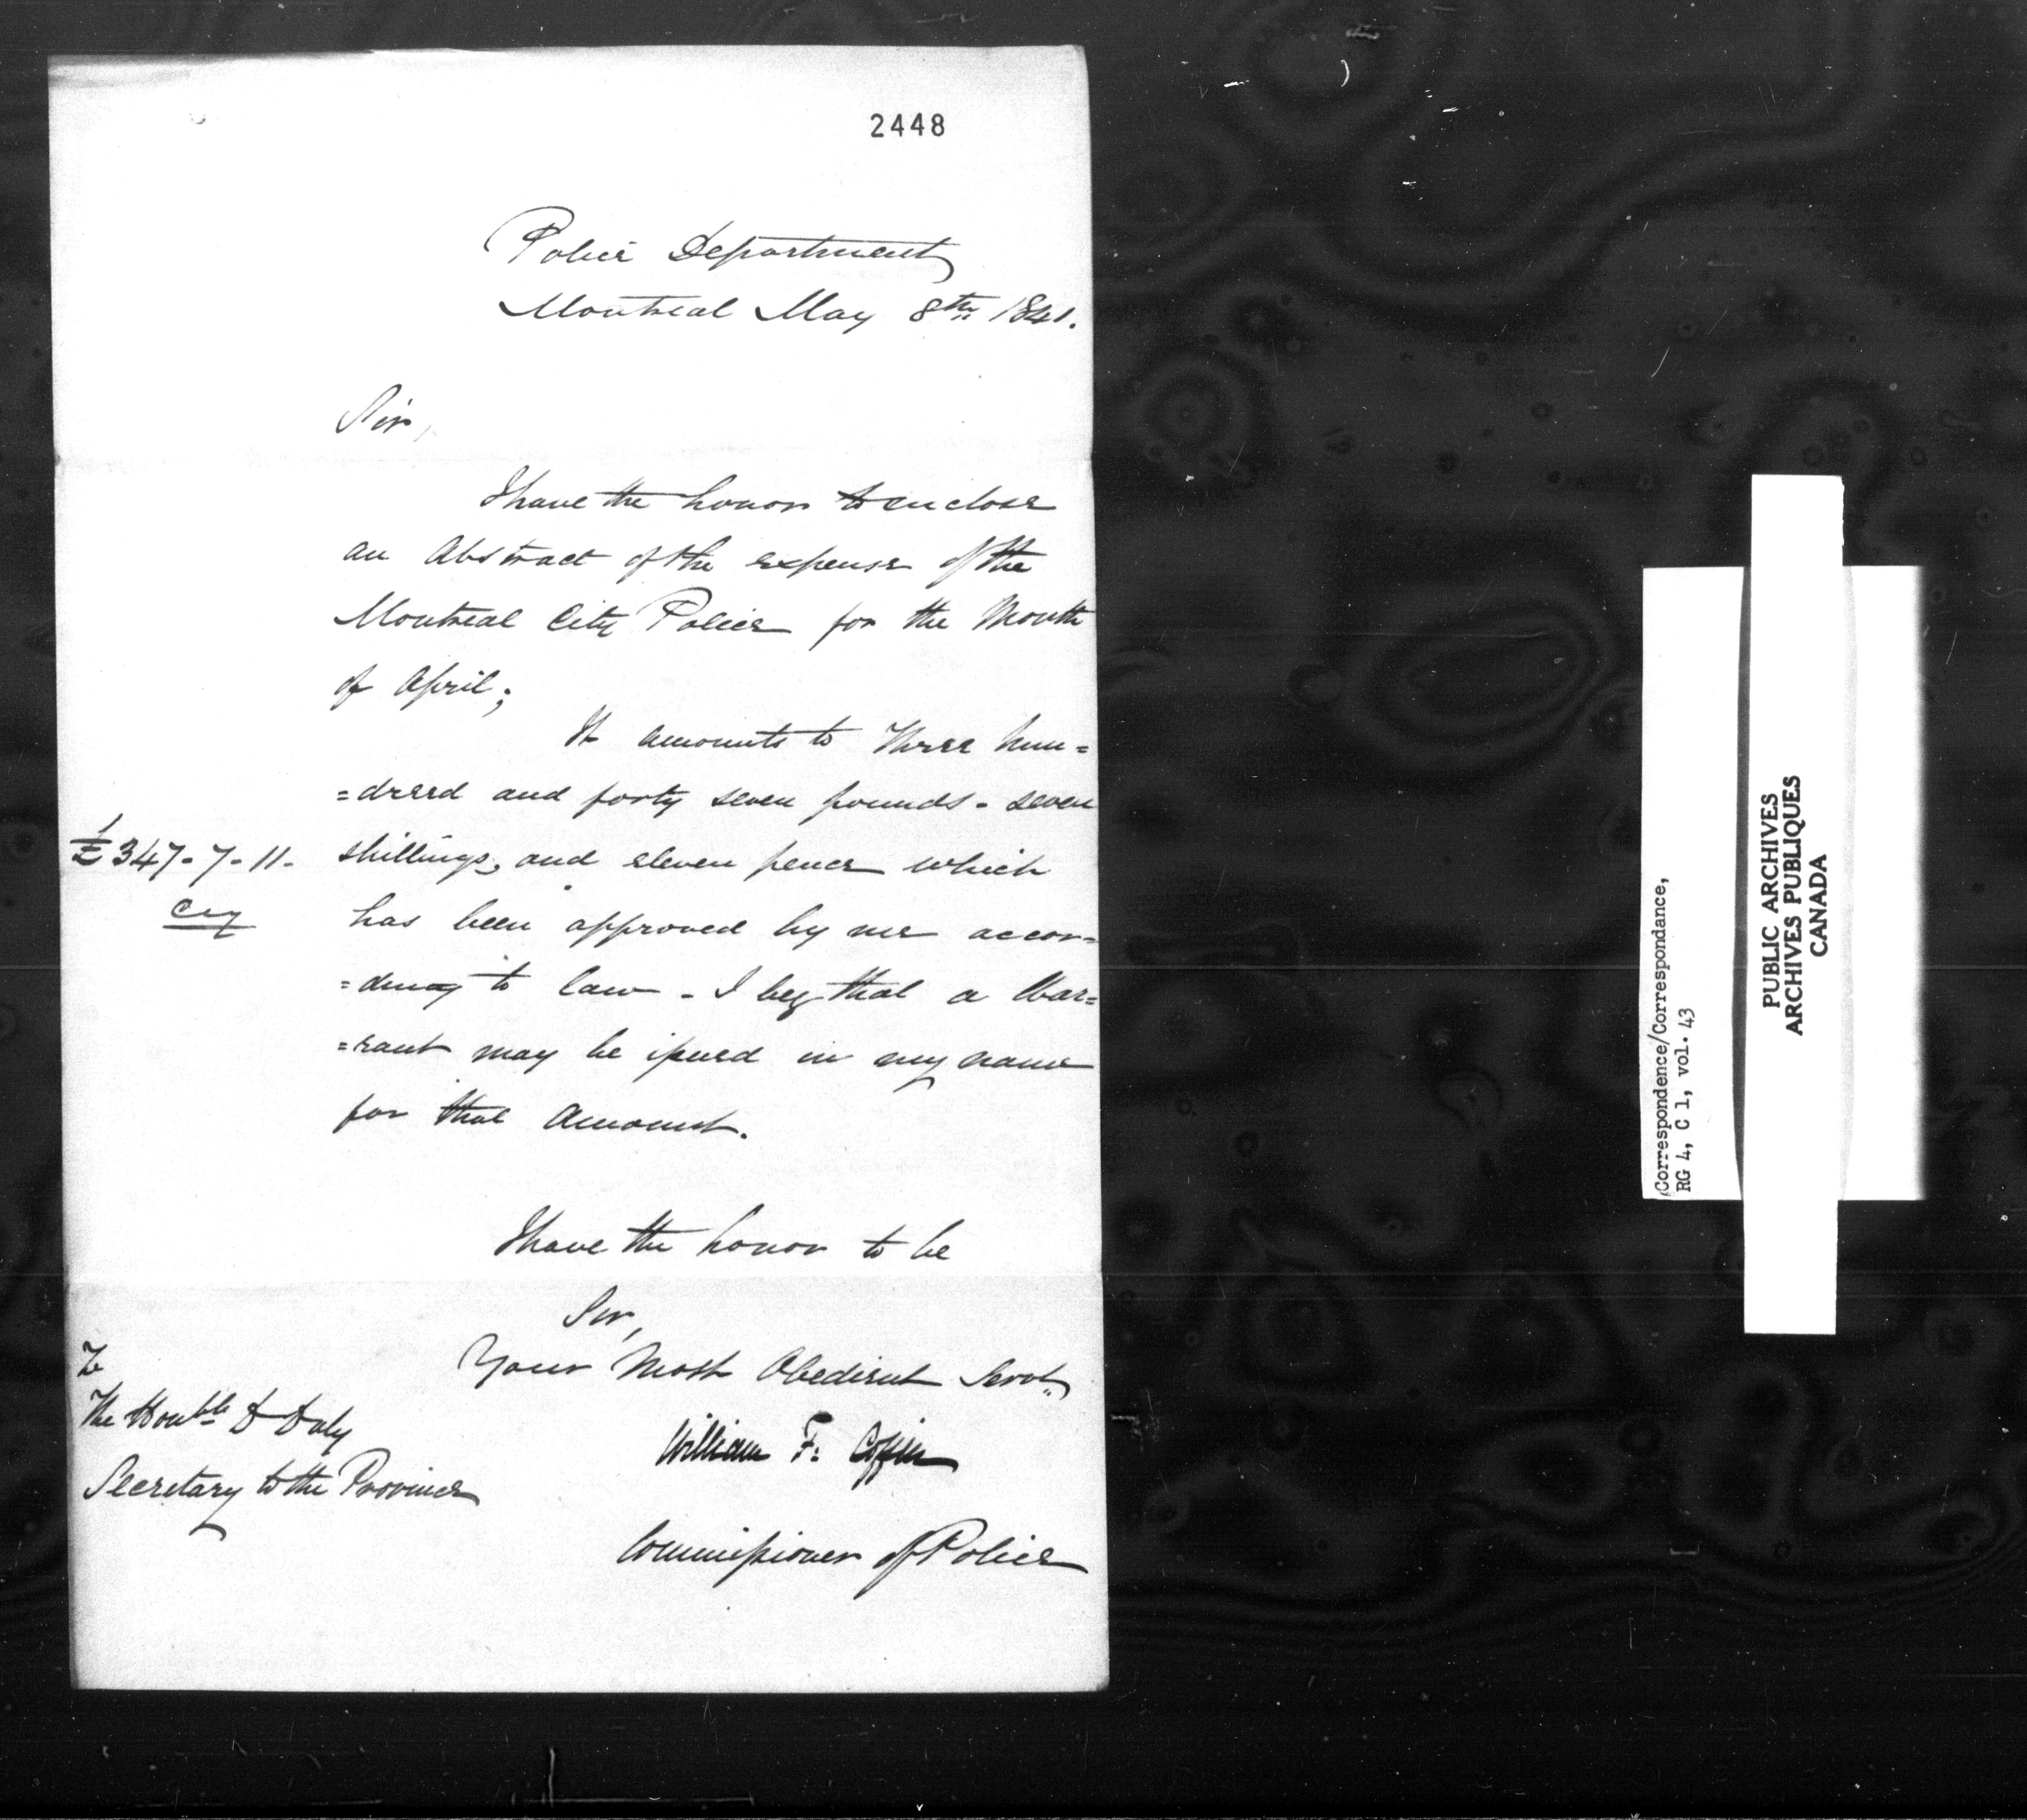 2448
Police Department
Montreal May 8th 1841.
Sir,
I have the honor to enclose
an Abstract of the expense of the
Montreal City Police for the Month
of April;
It amounts to Three hun=
=dreed and forty seven pounds - seven
£347-7-11. shillings, and eleven pence which
Cey has been approved by me accor=
=ding to law - I beg that a War=
=rant may be issued in my name
for that amount.
I have the honor to be
Sir,
Your Most Obedient Servt
To
The Honble D Daly
William F. Coffin
Secretary to the Province
Commissioner of Police
Correspondence/Correspondance,
RG 4, C 1, vol. 43
PUBLIC ARCHIVES
ARCHIVES PUBLIQUES
CANADA